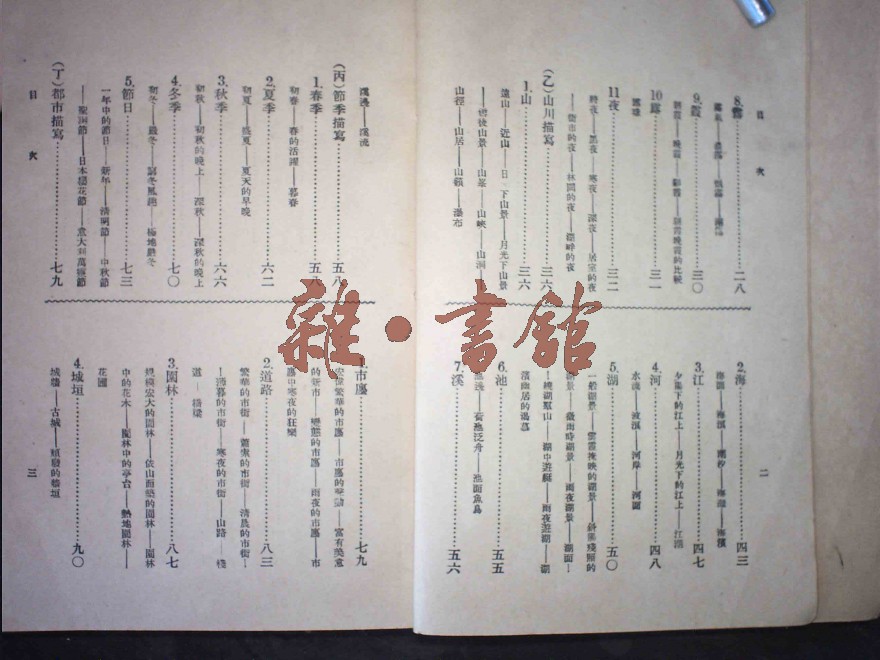 目次
二
8.霧……二八
9.霞……三〇
10露……三一
露珠
11夜……三二
静夜——黑夜——寒夜——深夜——居室的夜
——都市的夜——林間的夜——湖畔的夜
(乙)山川描寫……三六
1.山……三六
遠山——近山——日下山景——月光下山景
——雪後山景——山峯——山峽——山洞
山徑——山居——山鎮——瀑布
2.海……四三
3.江……四七
夕陽下的江上——月光下的江上——江潮
4.河……四八
水淺——波濱——河岸——河面
5.湖……五〇
一般湖景——雲霞掩映的湖景——斜陽殘照的
湖景——微雨時湖景——雨夜湖景——湖面
——繞湖羣山——湖中遊艇——雨夜遊湖——湖
濱幽居的追慕
6.池……五五
池邊——荷池泛舟——池面魚鳥
7.溪……五六
溪邊——溪流
(丙)節季描寫……五八
1.春季……五八
初春——春的活躍——暮春
2.夏季……六二
初夏——盛夏——夏天的早晚
3.秋季……六六
初秋——初秋的晚上——深秋——深秋的晚上
4.冬季……七〇
初冬——嚴冬——窮冬風趣——極地嚴冬
5.節日……七三
一年中的節日——新年——清明節——中秋節
——聖誕節——日本櫻花節——意大利萬極節
(丁)都市描寫……七九
1.市廛……七九
安逸繁華的市廛——市廛的聲勢——富有美意
的新市——變態的市廛——雨夜的市廛——市
廛中寒夜的狂樂
2.道路……八三
繁華的市街——蕭索的市街——清晨的市街
——薄暮的市街——寒夜的市街——山路——棧
道——橋梁
3.園林……八七
規模宏大的園林——依山而築的園林——園林
中的花木——園林中的亭台——熱地園林——
花園
4.城垣……九〇
城牆——古城——頹廢的牆垣
目次
三
雜·書館